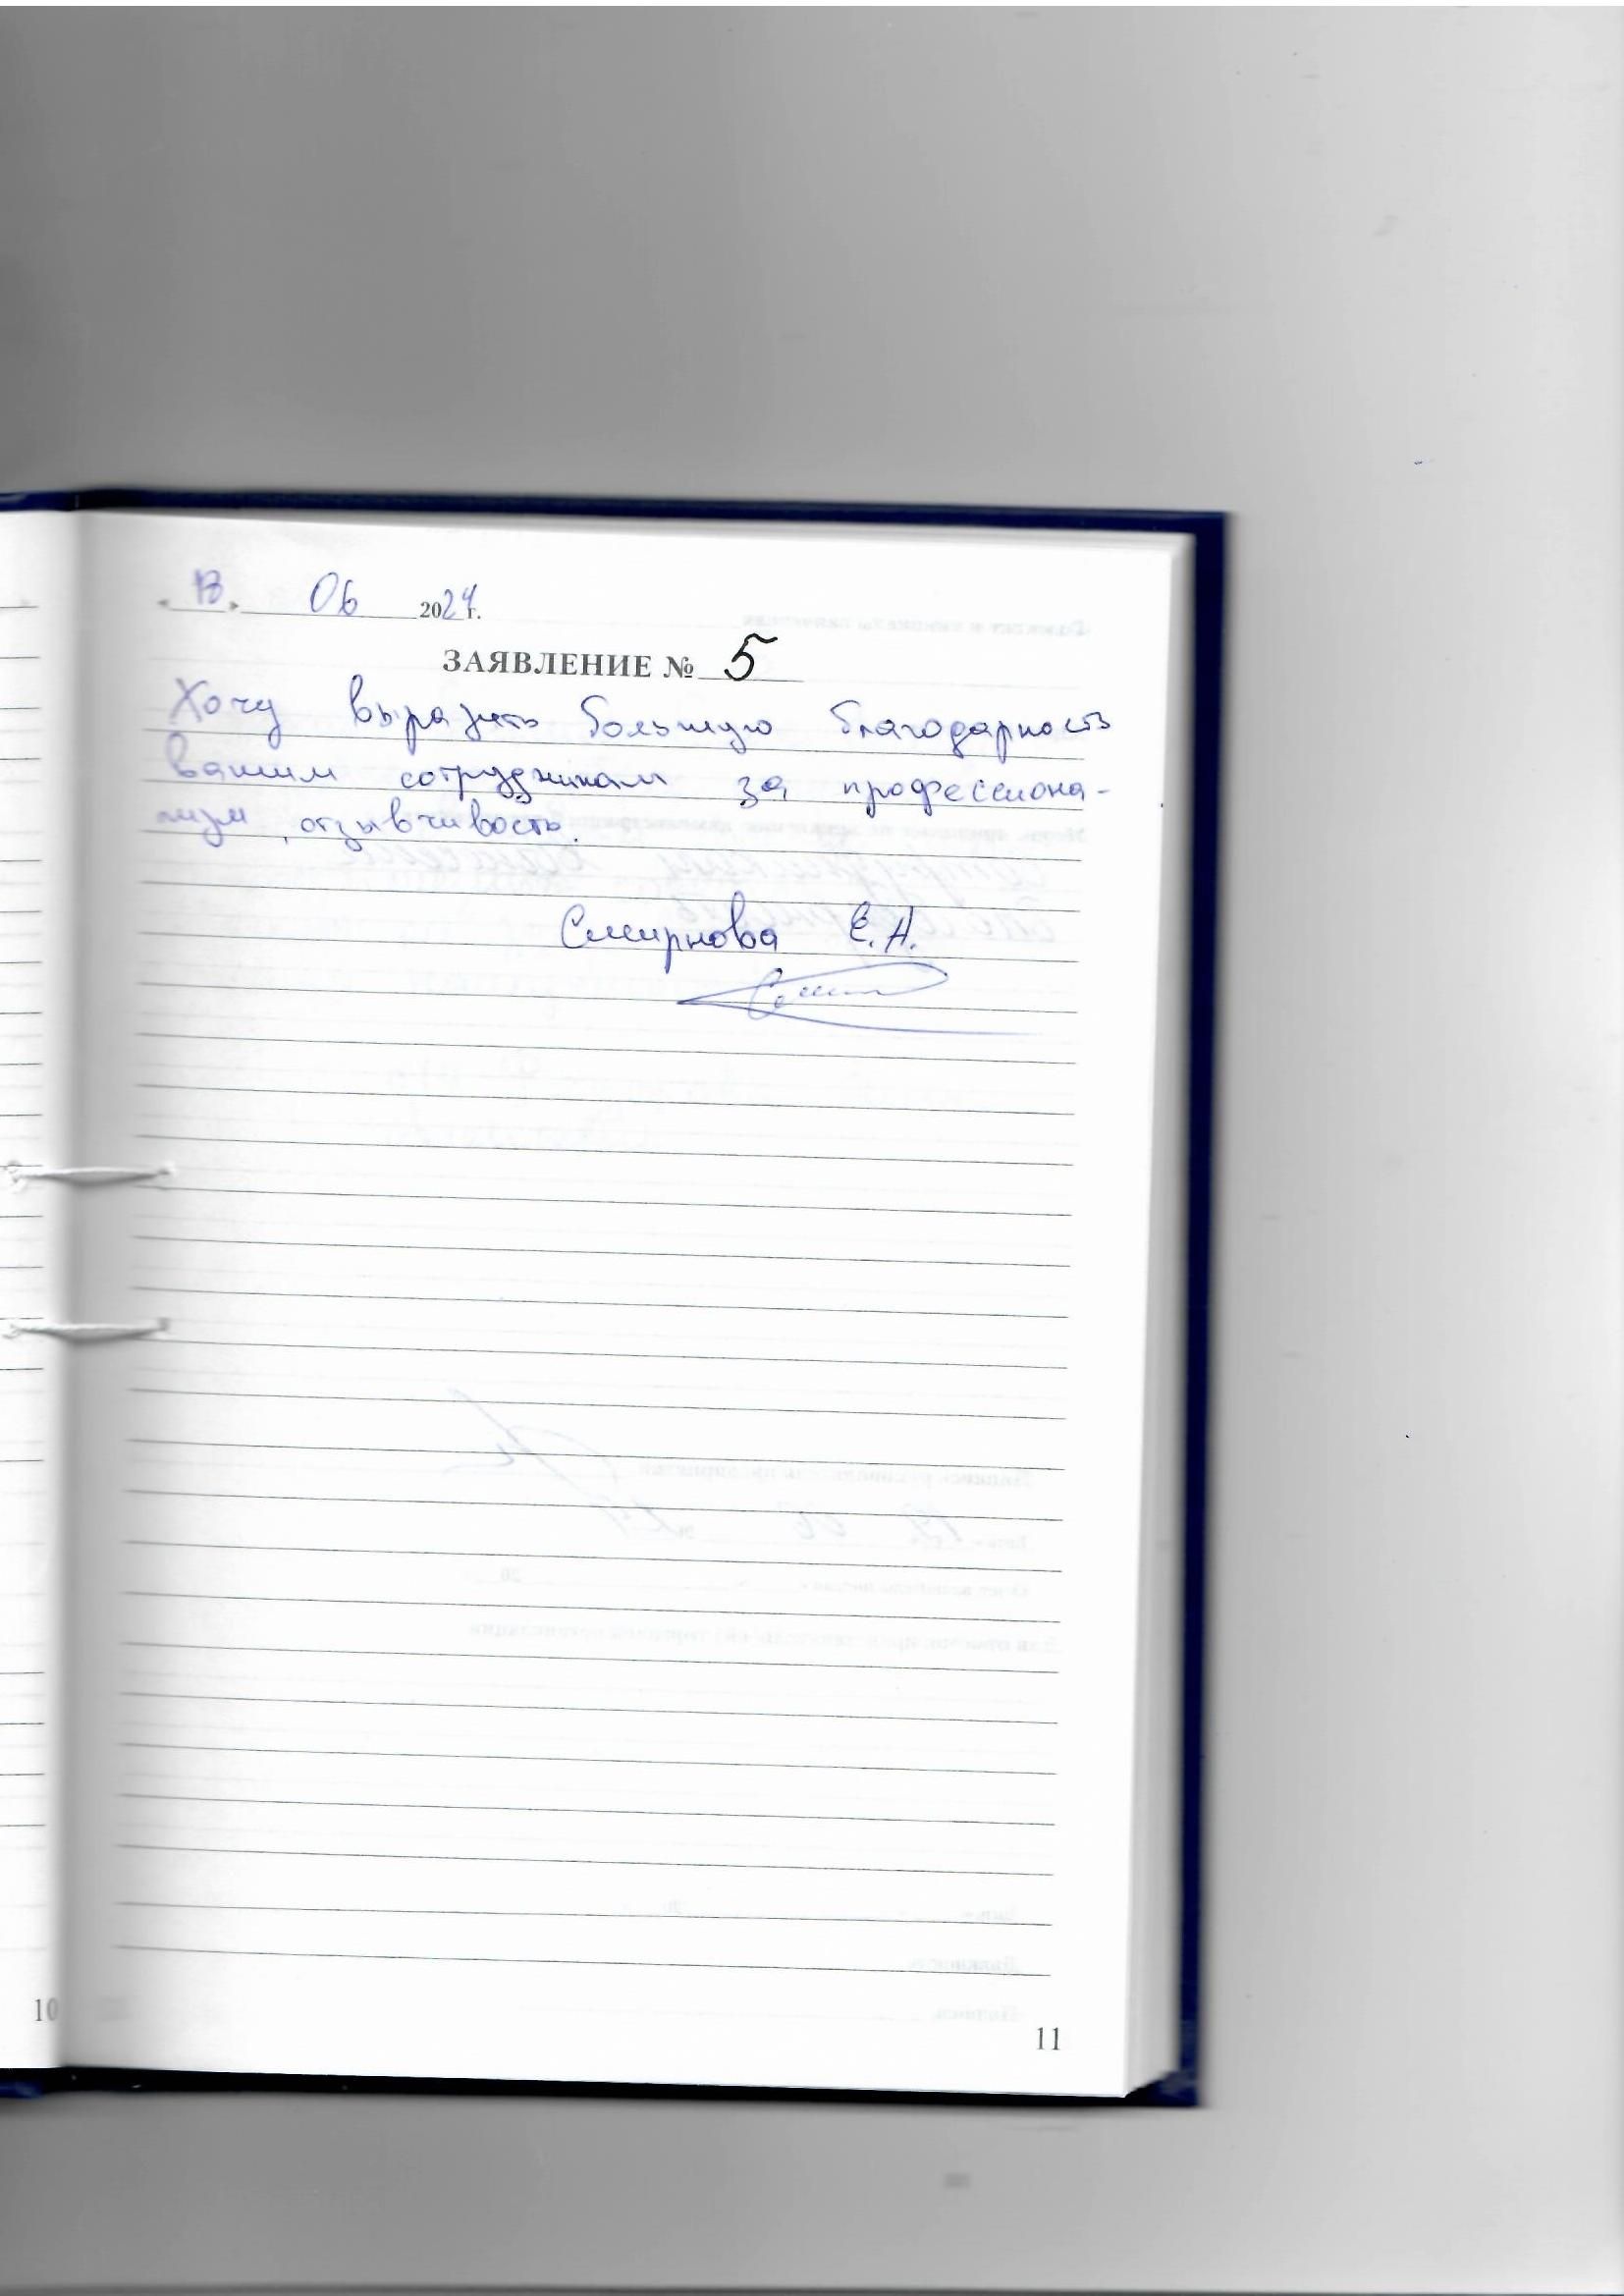 « 18 » 06 2024 г.
ЗАЯВЛЕНИЕ № 5
Хочу выразить большую благодарность
вашим сотрудникам за профессиона-
лизм, отзывчивость.
Смирнова Е.А.
10
11